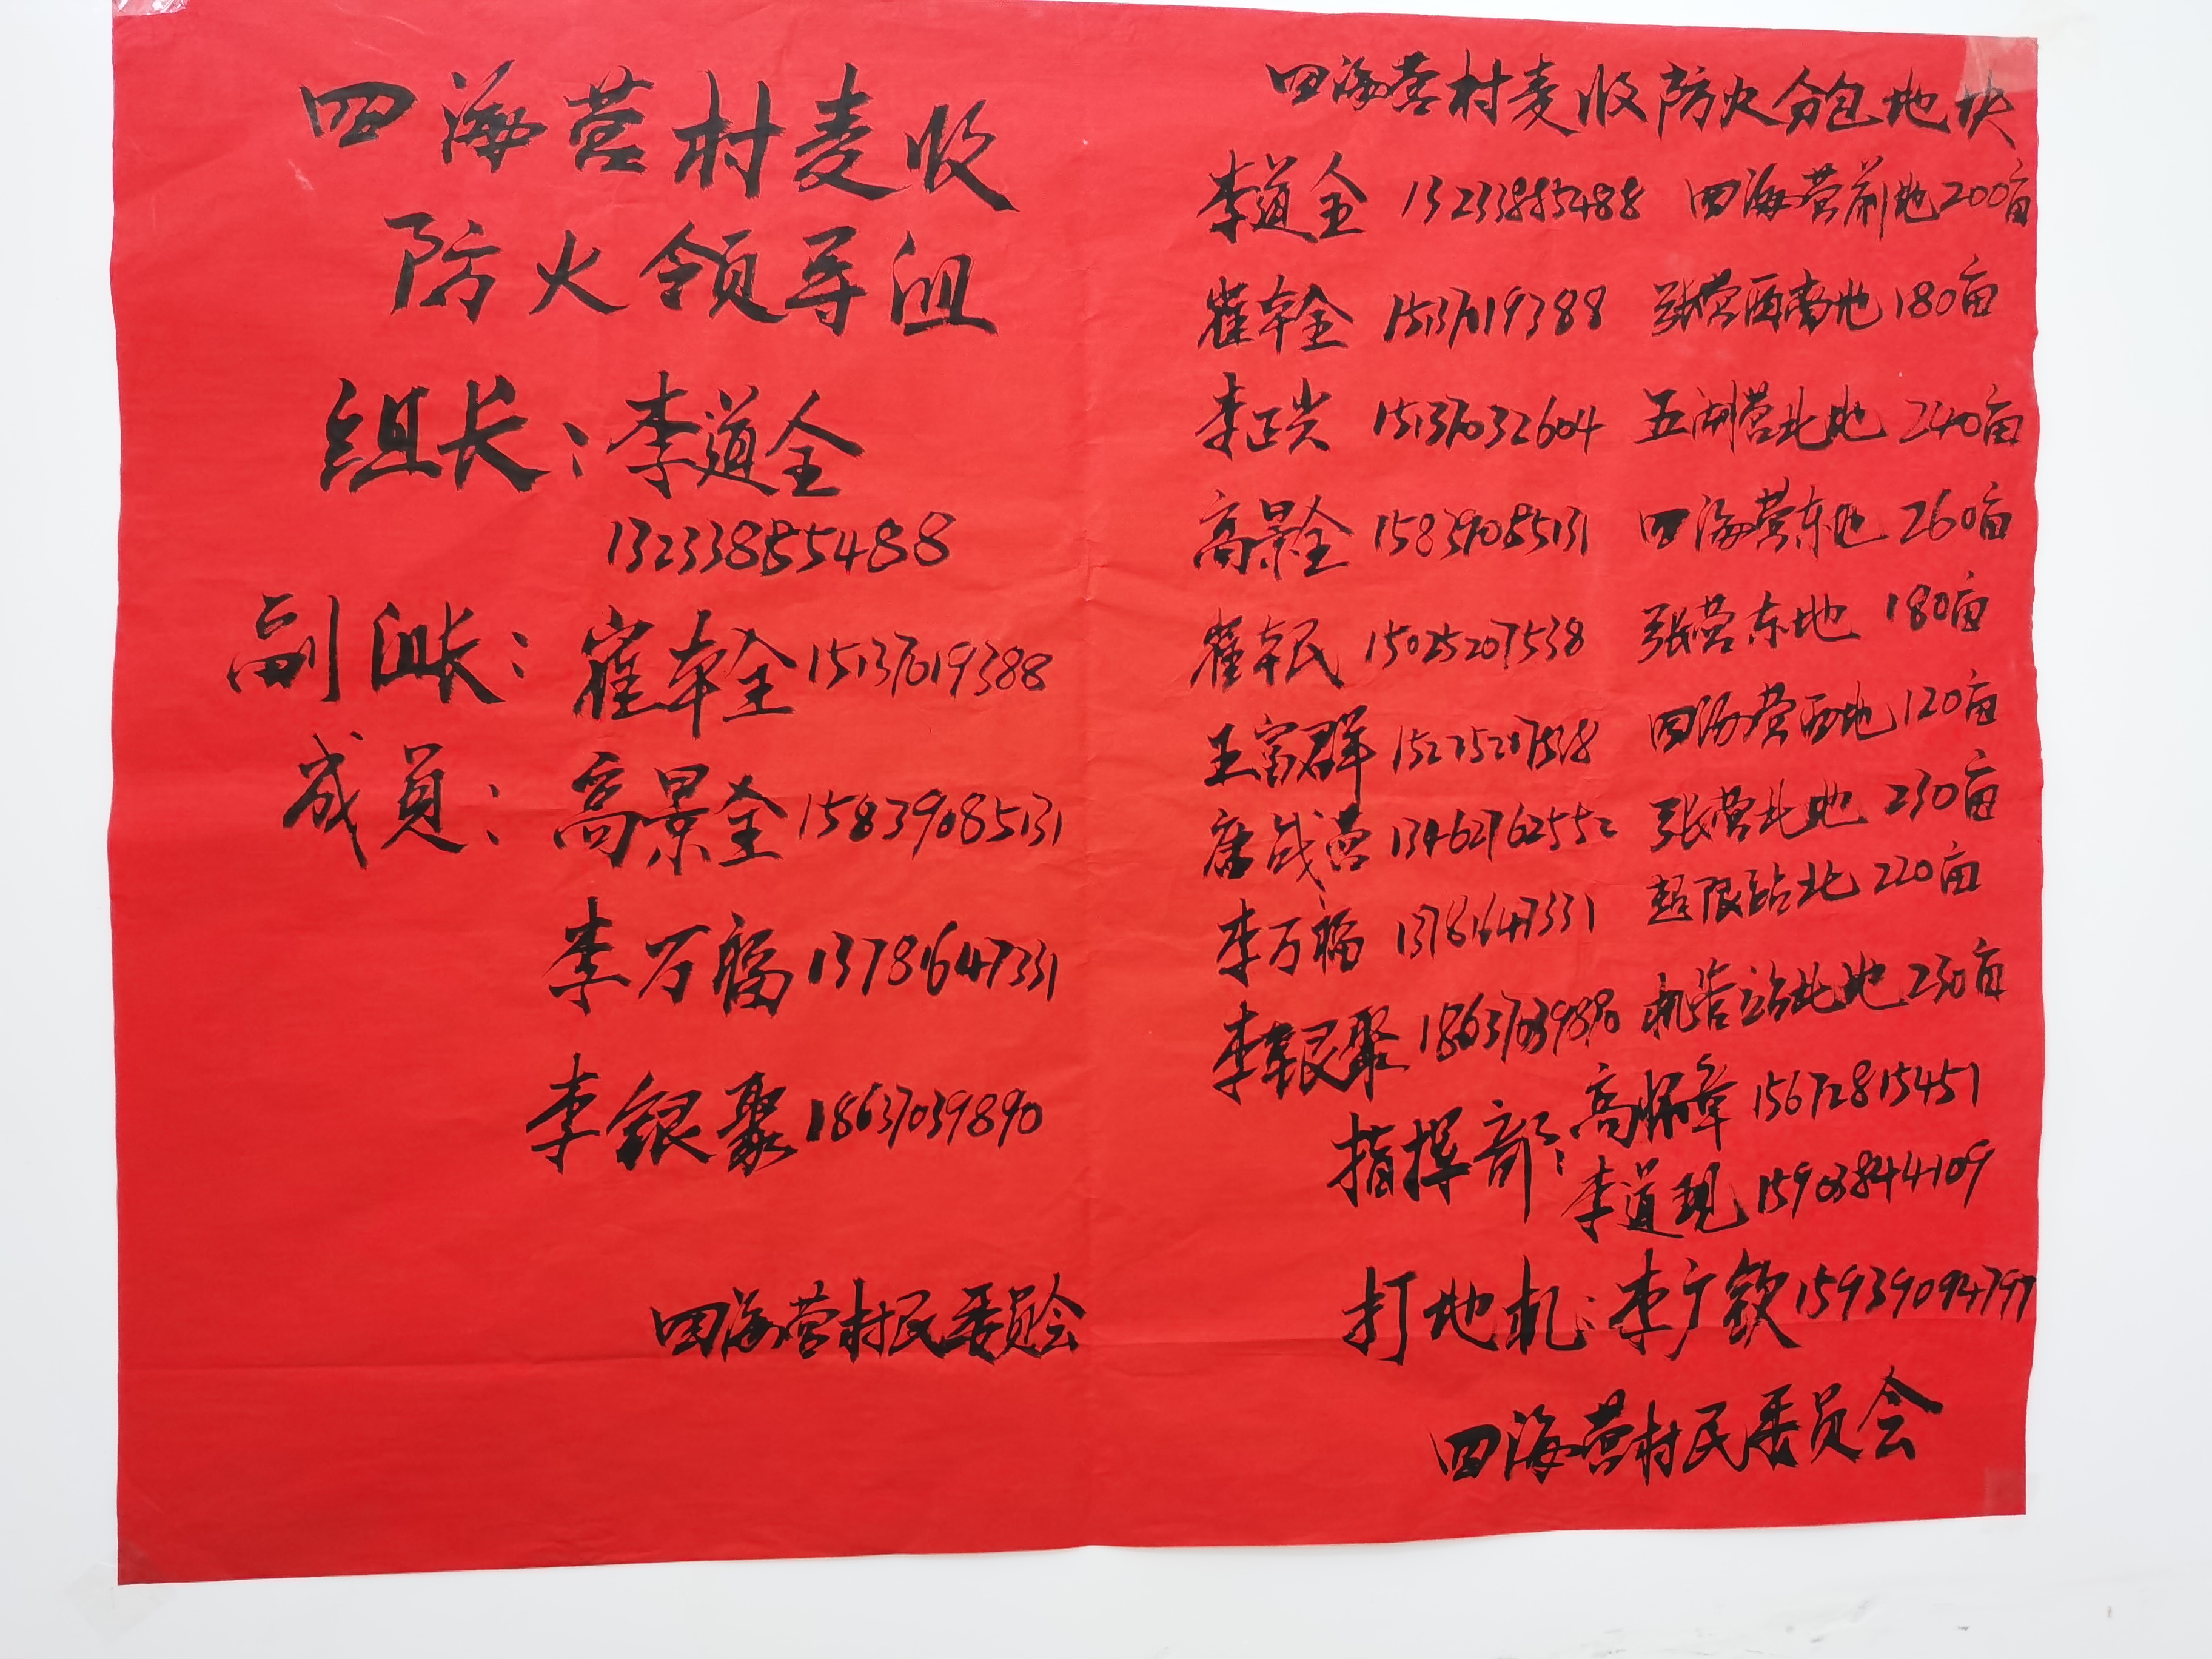 四海营村麦收
防火领导组
组长：李道全
13233885488
副组长：崔本全 15137019388
成员：高景全 15839085131
李万福 13781647331
李银聚 18637039890
四海营村民委员会
四海营村麦收防火分包地块
李道全 13233885488 四海营前地200亩
崔本全 15137019388 张营西南地180亩
李正光 15137032604 五湖营北地240亩
高景全 15839085131 四海营东地260亩
崔本民 15025207538 张营东地180亩
王富群 四海营西地120亩
唐战营 13462762552 张营北地230亩
李万福 13781647331 超限站北220亩
李银聚 18637039890 机岩站北地230亩
指挥部：高怀章 15672815451
李道现 15903844109
打地机：李广钦 15939094797
四海营村民委员会